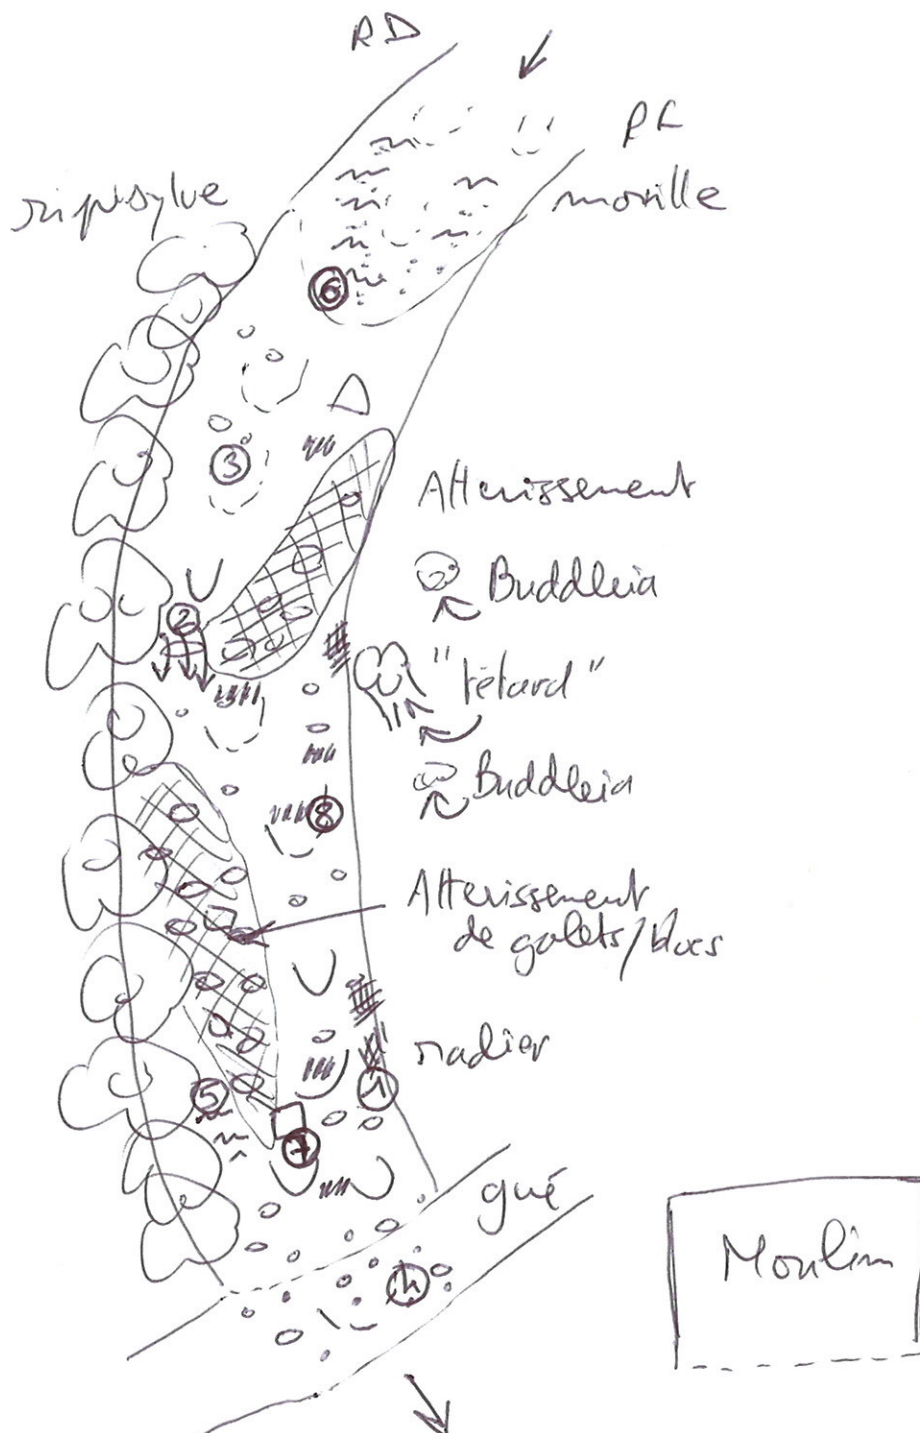 RD
RG
ripisylve
mouille
6
3
Atterissement
Buddleia
2
"têtard"
Buddleia
8
Atterissement
de galets/blocs
radier
5
1
7
gué
4
Moulin